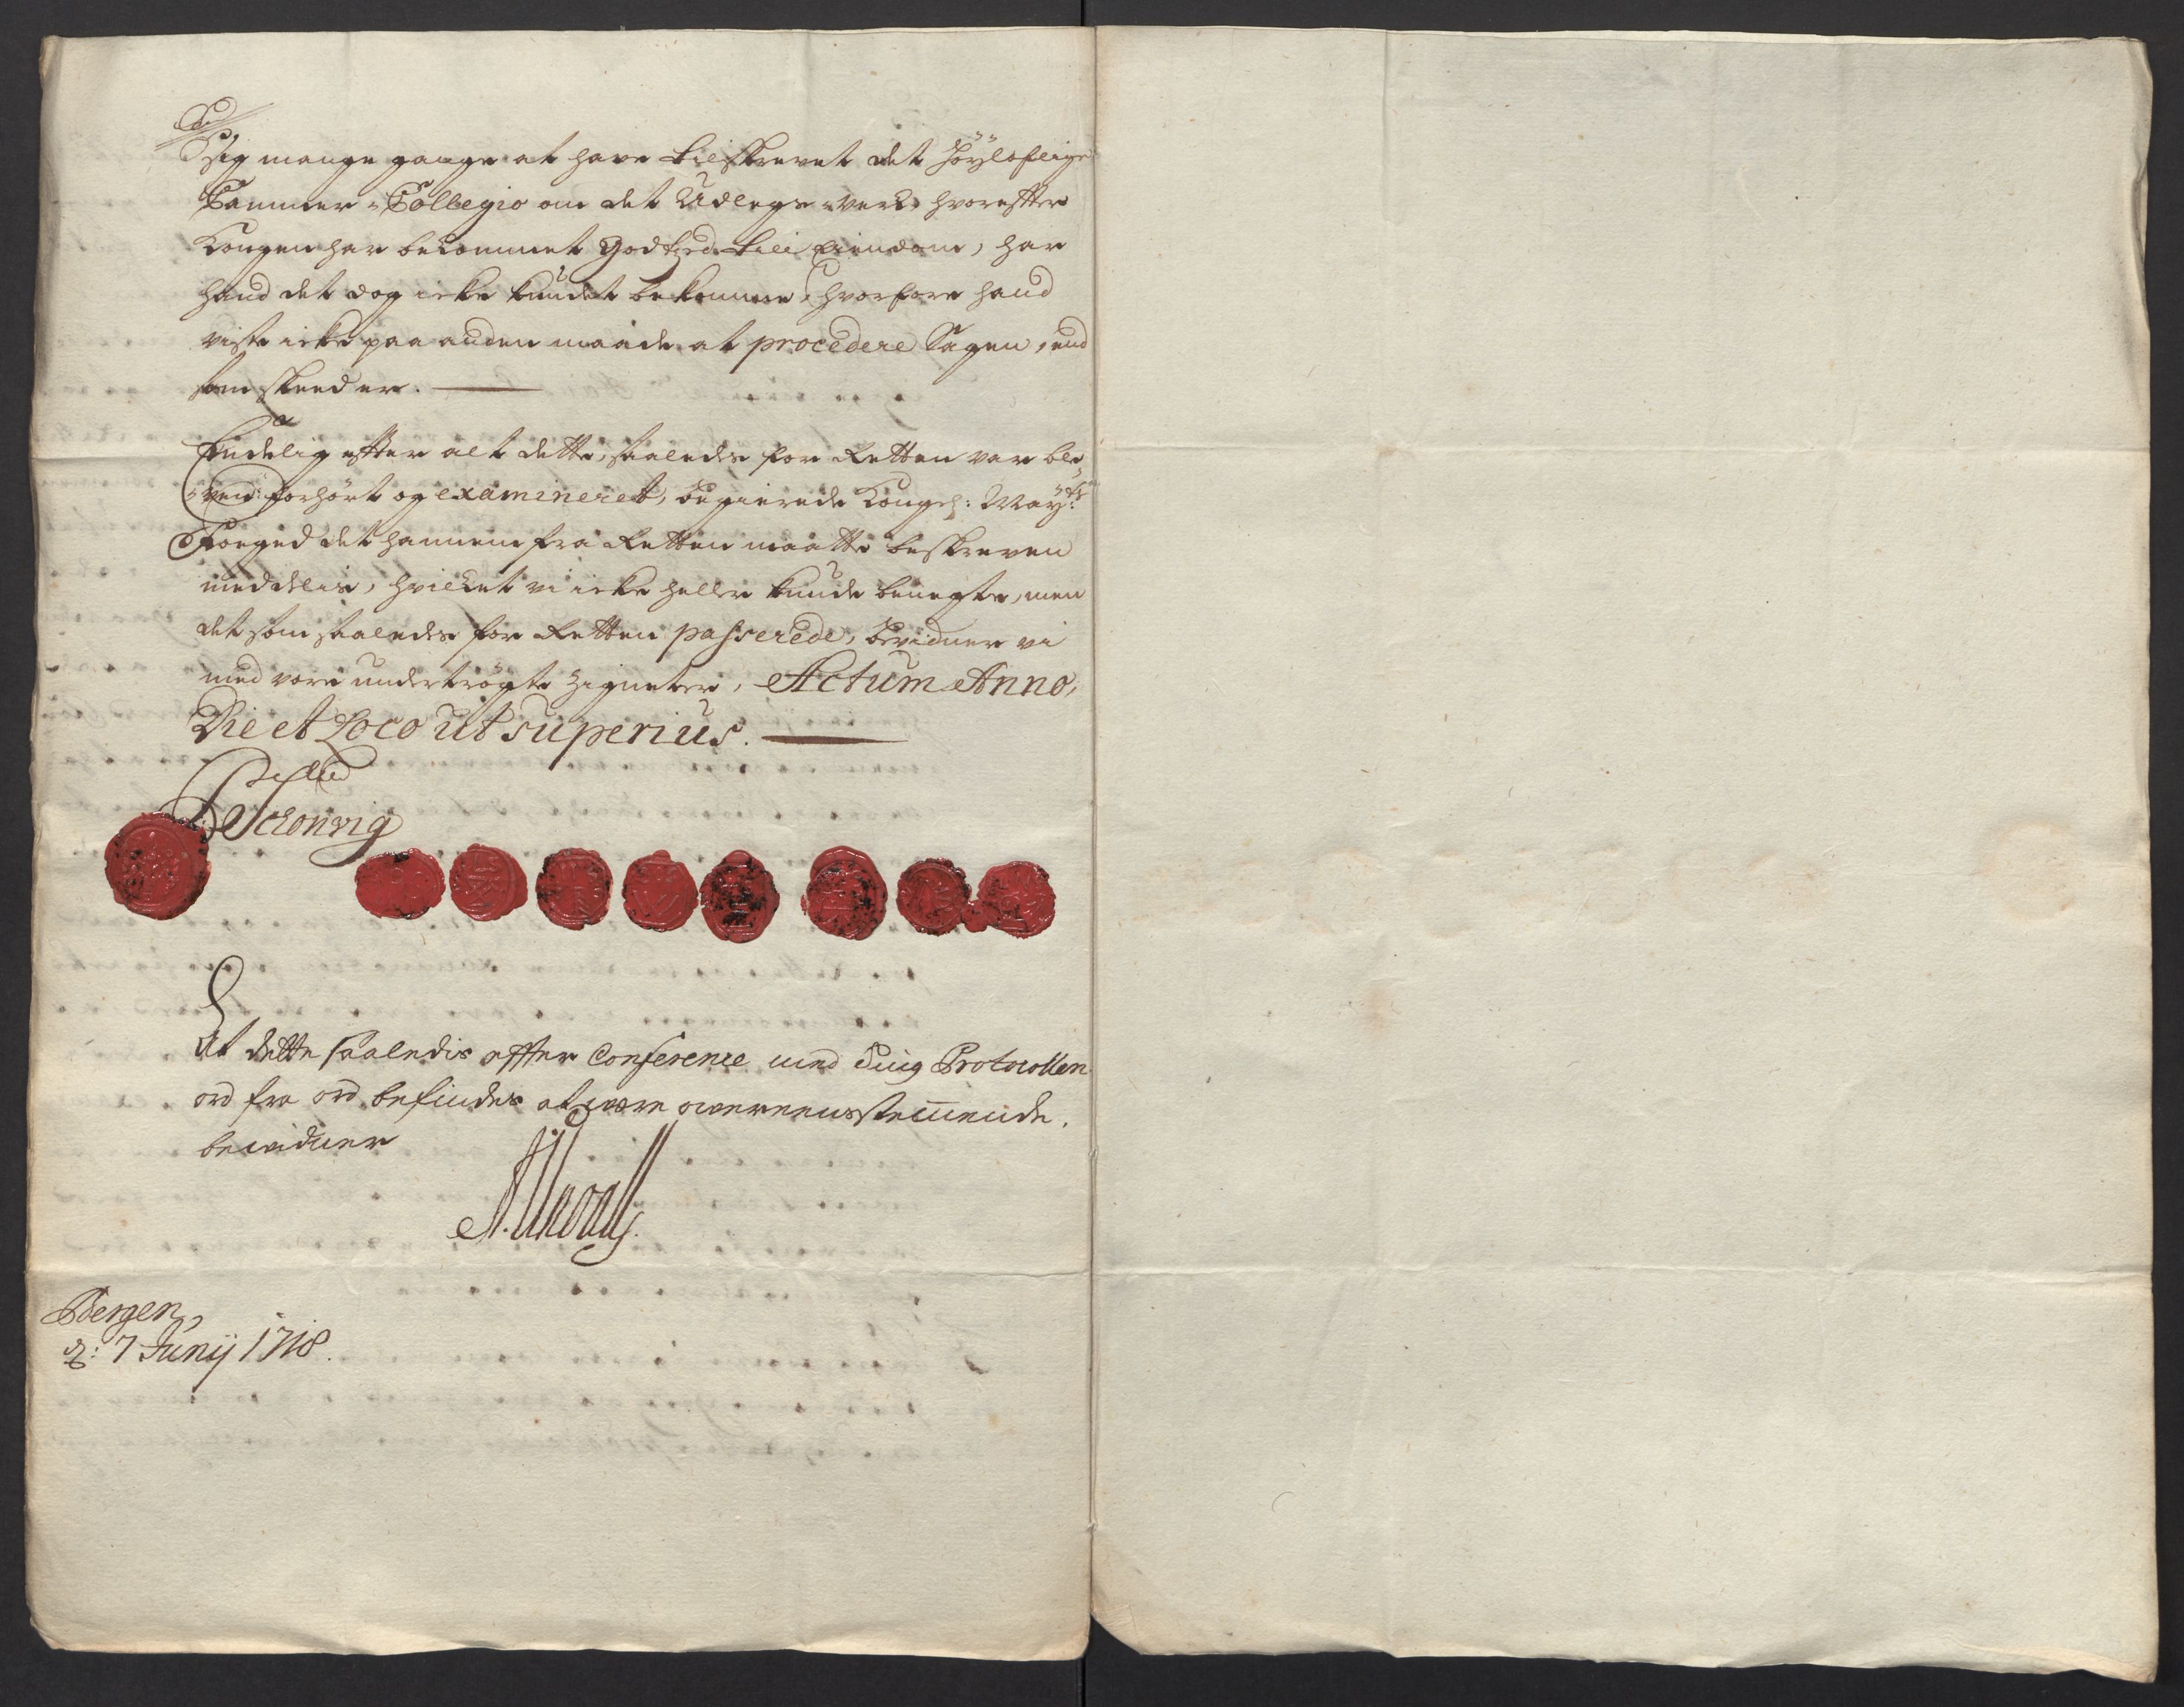 Sig mange gange at have tilskrevet det Höyloflige
Cammer-Collegio om det Udlegs-verk, hvoreffter
Kongen har bekommet godtzed till Eiendom, har
hand det dog icke kundet bekomme, hvorfore hand
viste icke paa anden maade at procedere Sagen, end
som skeed er.
Endelig effter alt dette, saaledes for Retten var ble-
ven forhört og examineret, begierede Kongl: Mayts
Foeged det hannem fra Retten maatte beskreven
meddelis, hvilket vi icke heller kunde benegte, men
det som saaledes for Retten passerede, bevidner vi
med vore undertrögte Zigneter, Actum Anno,
Die et Loco ut superius.
At dette saaledis effter Conference med Ting Protocollen
ord fra ord befindes at være overeensstemmende,
bevidner
Bergen,
d: 7 Junij 1718.